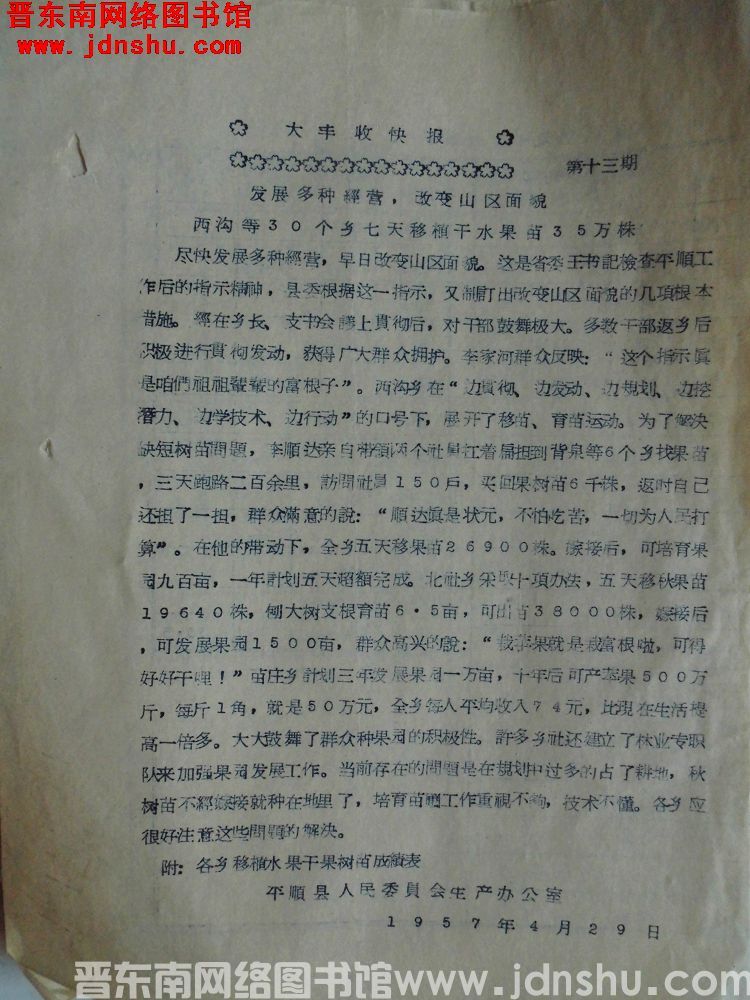 晋东南网络图书馆
www.jdnshu.com
大丰收快报
第十三期
发展多种經营，改变山区面貌
西沟等30个乡七天移植干水果苗35万株
尽快发展多种經营，早日改变山区面貌。这是省委王书記檢查平順工
作后的指示精神，县委根据这一指示，又制訂出改变山区面貌的几項根本
措施。經在乡长、支书会議上貫彻后，对干部鼓舞极大。多数干部返乡后
积极进行貫彻发动，获得广大群众拥护。李家河群众反映：“这个指示眞
是咱們祖祖輩輩的富根子”。西沟乡在“边貫彻、边发动、边规划、边挖
潛力、边学技术、边行动”的口号下，展开了移苗、育苗运动。为了解决
缺短树苗問題，李順达亲自带領两个社員扛着扁担到背泉等6个乡找果苗
，三天跑路二百余里，訪問社員150戶，买回果树苗6千株，返时自己
还担了一担，群众滿意的說：“順达眞是状元，不怕吃苦，一切为人民打
算”。在他的带动下，全乡五天移果苗26900株。嫁接后，可培育果
园九百亩，一年計划五天超額完成。北社乡采取十項办法，五天移秋果苗
19640株，刨大树支根育苗6·5亩，可出苗38000株，嫁接后
，可发展果园1500亩，群众高兴的說：“栽苹果就是栽富根啦，可得
好好干哩！”苗庄乡計划三年发展果园一万亩，十年后可产苹果500万
斤，每斤1角，就是50万元，全乡每人平均收入74元，比現在生活提
高一倍多。大大鼓舞了群众种果园的积极性。許多乡社还建立了林业专职
队来加强果园发展工作。当前存在的問題是在规划中过多的占了耕地，秋
树苗不經嫁接就种在地里了，培育苗圃工作重視不夠，技术不懂。各乡应
很好注意这些問題的解决。
附：各乡移植水果干果树苗成績表
平順县人民委員会生产办公室
1957年4月29日
晋东南网络图书馆www.jdnshu.com